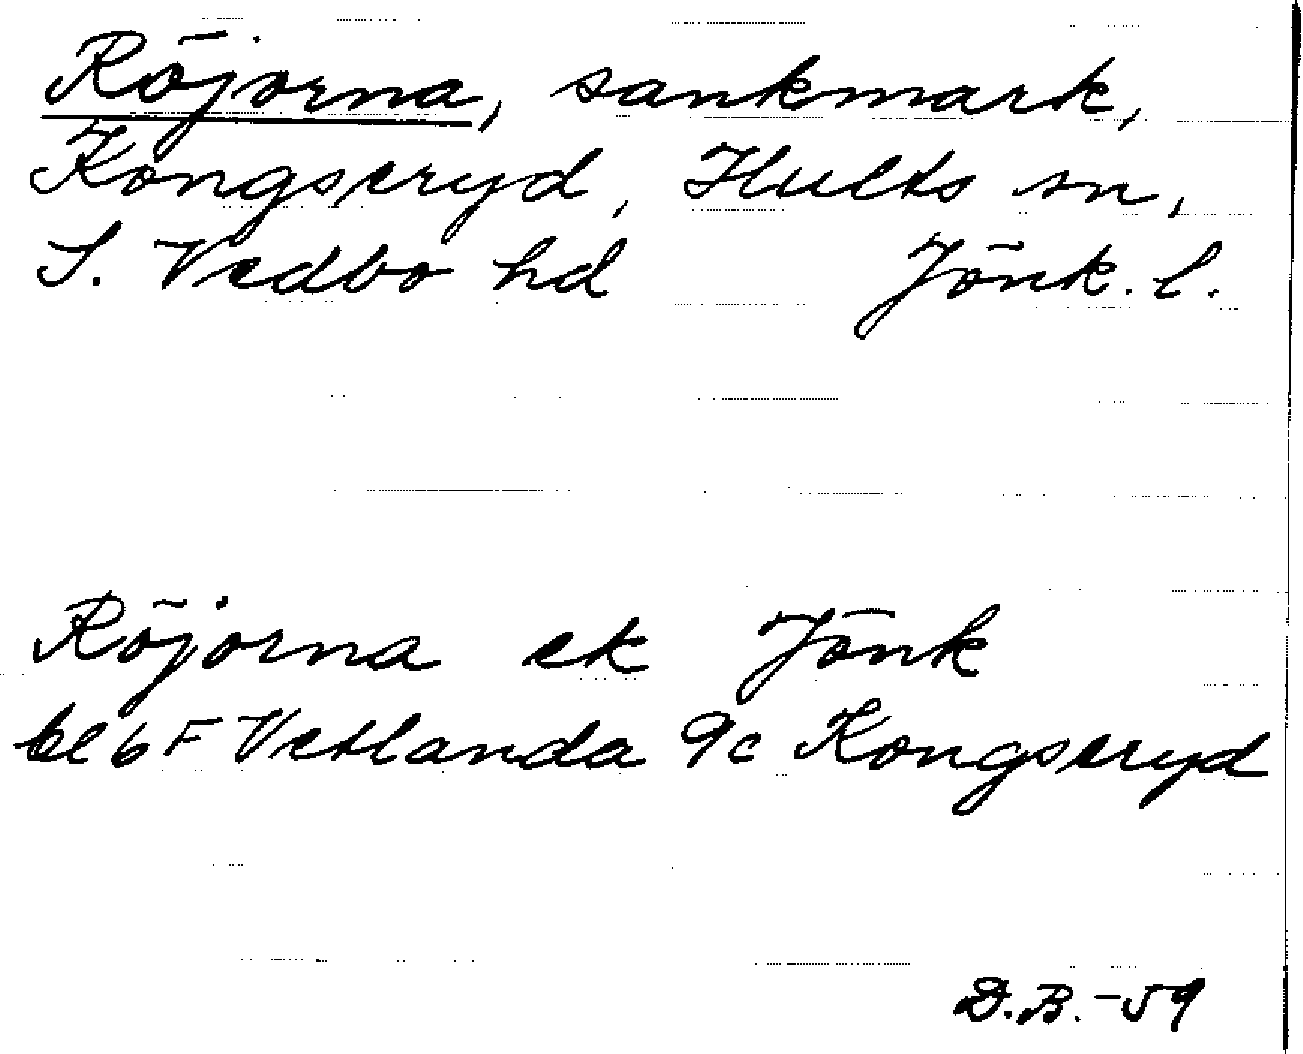 Röjorna, sankmark,
Kongseryd, Hults sn,
S. Vedbo hd Jönk. l.
Röjorna ek Jönk
bl 6 F Vetlanda 9c Kongseryd
D.B.-59